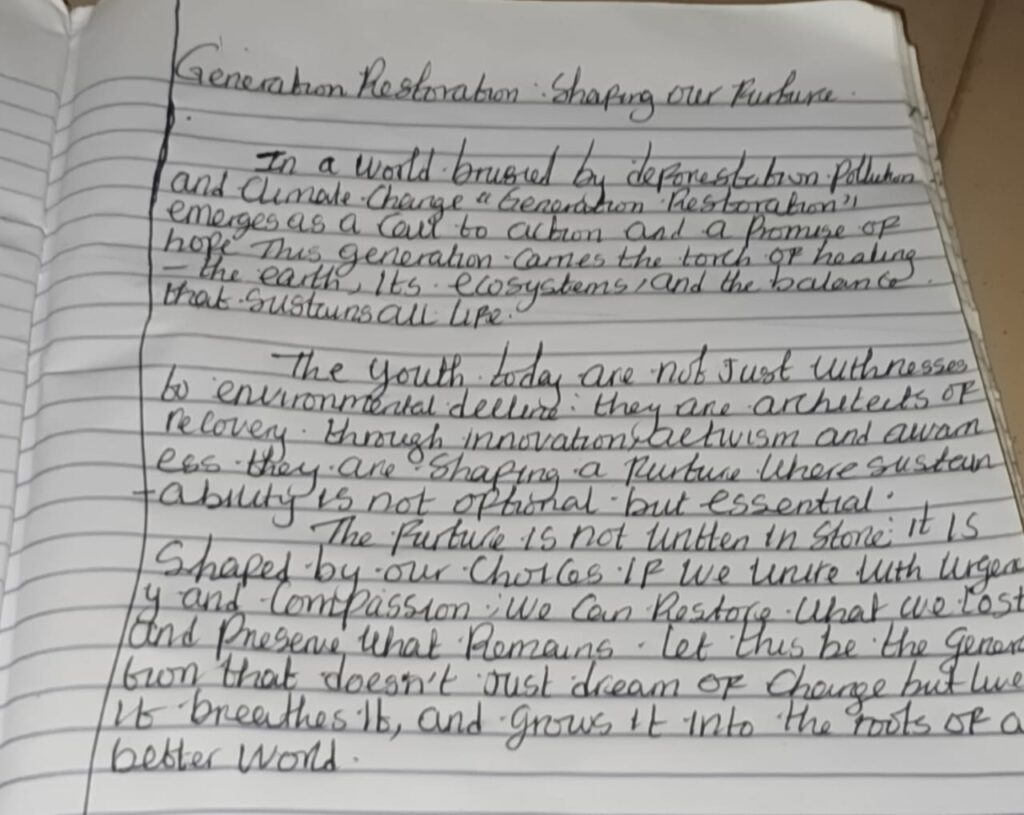 Generation Restoration: Shaping our Furture.
In a world brused by deforestation pollution
and Climate Change "Generation Restoration"
emerges as a call to action and a Promise of
hope This generation carries the torch of healing
- the earth, Its ecosystems, and the balance
that sustains all life.
The youth today are not Just withnesses
to environmental decline: they are architects of
recovery. through innovation, activism and awarn
ess they are Shaping a Furture Where sustain
-ability is not optional but essential.
The Furture is not written in Stone; it is
Shaped by our Choices If we unite with Urgenc
y and Compassion, We Can Restore What we Lost
And Preserve What Remains. Let this be the genera
tion that doesn't Just dream of Change but live
it breathes it, and grows it into the roots of a
better World.